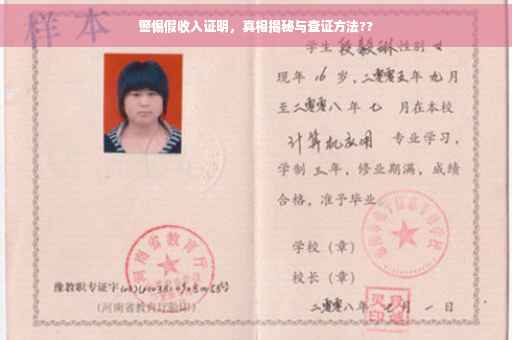 警惕假收入证明，真相揭秘与查证方法??
样本
学生 段毅琳 性别 女
现年 16 岁，二零零五年 九 月
至二零零八 年 七 月在本校
计算机应用 专业学习，
学制 三 年，修业期满，成绩
合格，准予毕业
学校（章）
校长（章）
二零零八年 七 月 一 日
河南省教育厅
豫教职专证字
（河南省教育厅验印）